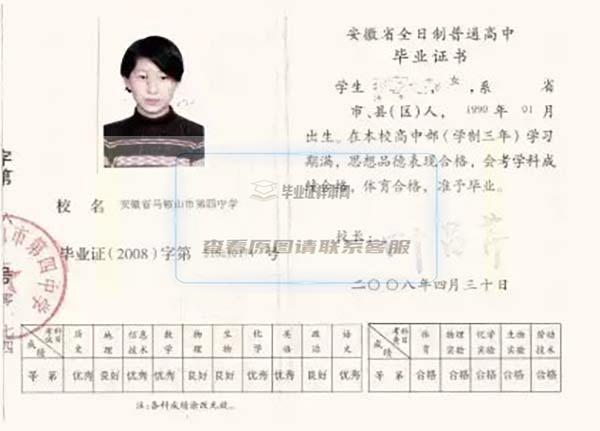 安徽省全日制普通高中
毕业证书
学生 女,系 省
市、县(区)人, 1990 年 01 月
出生。在本校高中部(学制三年)学习
期满,思想品德表现合格,会考学科成
绩合格,体育合格,准予毕业。
校长:
二〇〇八年四月三十日
校 名 安徽省马鞍山市第四中学
毕业证(2008)字第 号
毕业证样本网
查看原图请联系客服
字第
号
零七四
市第四中学
考试科目 成绩 历史 地理 信息技术 数学 物理 生物 化学 英语 政治 语文
等第 优秀 良好 优秀 优秀 良好 良好 优秀 优秀 良好 优秀
考查科目 成绩 体育 物理实验 化学实验 生物实验 劳动技术
等第 合格 合格 合格 合格 合格
注:各科成绩涂改无效。